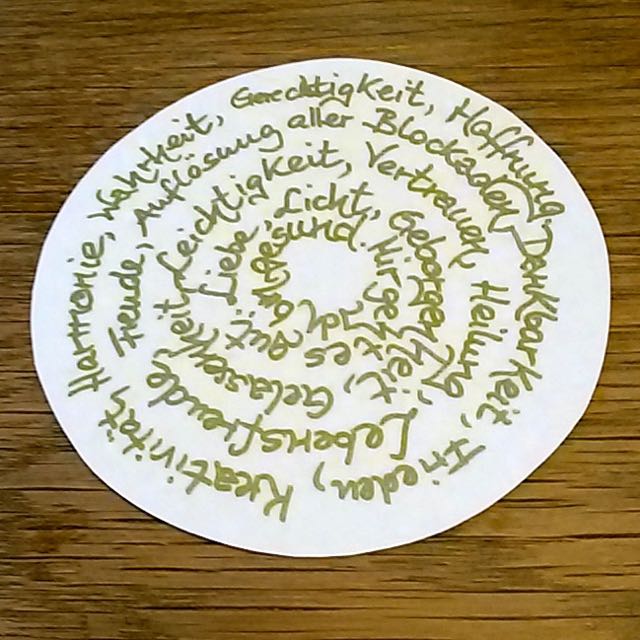 Harmonie, Wahrheit, Gerechtigkeit, Hoffnung, Dankbarkeit, Frieden, Kreativität,
Freude, Auflösung aller Blockaden, Heilung, Lebensfreude,
Leichtigkeit, Vertrauen, Geborgenheit, Gelassenheit,
Liebe, Licht, Mir geht es gut.
Ich bin gesund.